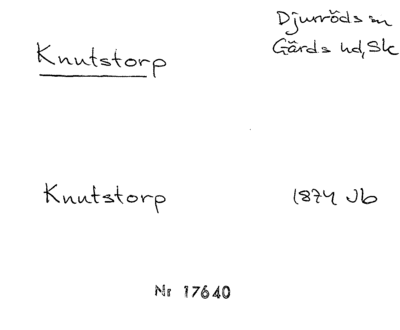 Djurröds sn
Knutstorp
Gärds hd, Sk
Knutstorp
1874 Jb
Nr 17640